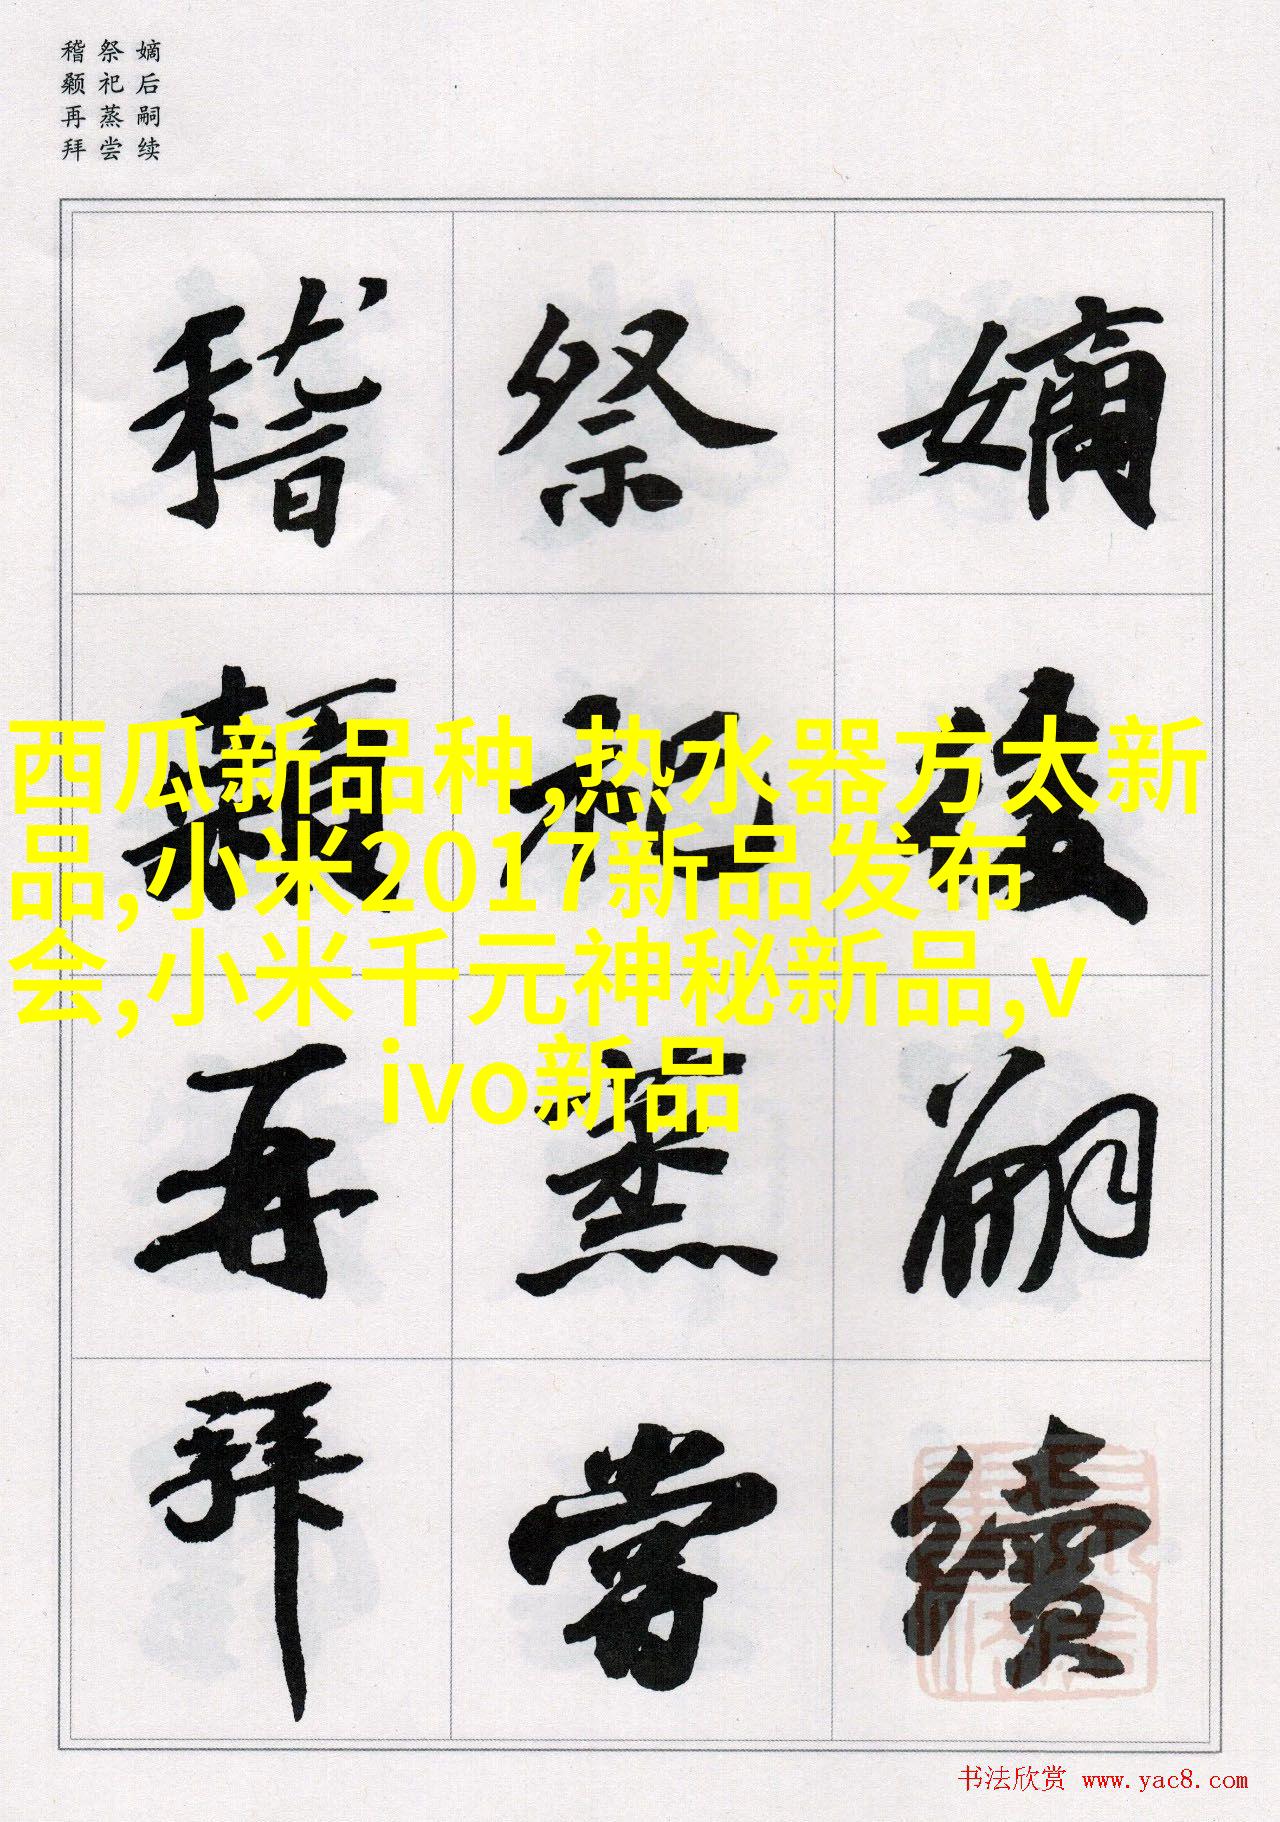 嫡后嗣续
祭祀蒸尝
稽颡再拜
嫡後嗣續
祭祀蒸嘗
稽顙再拜
西瓜新品种,热水器方太新
品,小米2017新品发布
会,小米千元神秘新品,v
ivo新品
书法欣赏 www.yac8.com